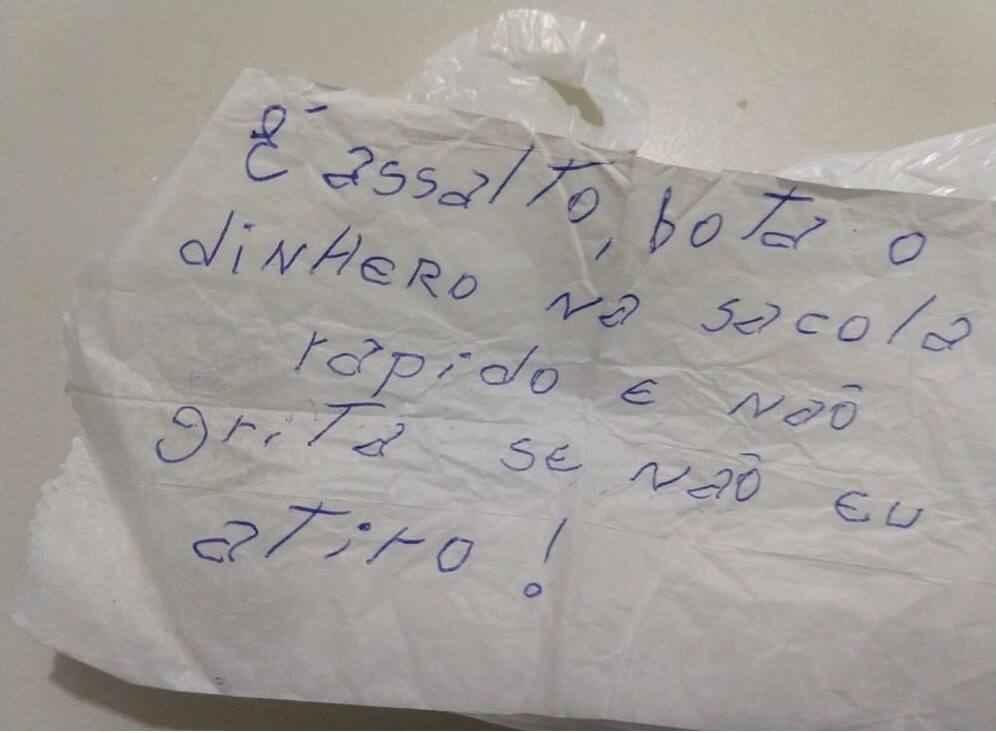 É assalto, bota o
dinHERO na sacola
rapido E Não
grita SE Não EU
atiro!